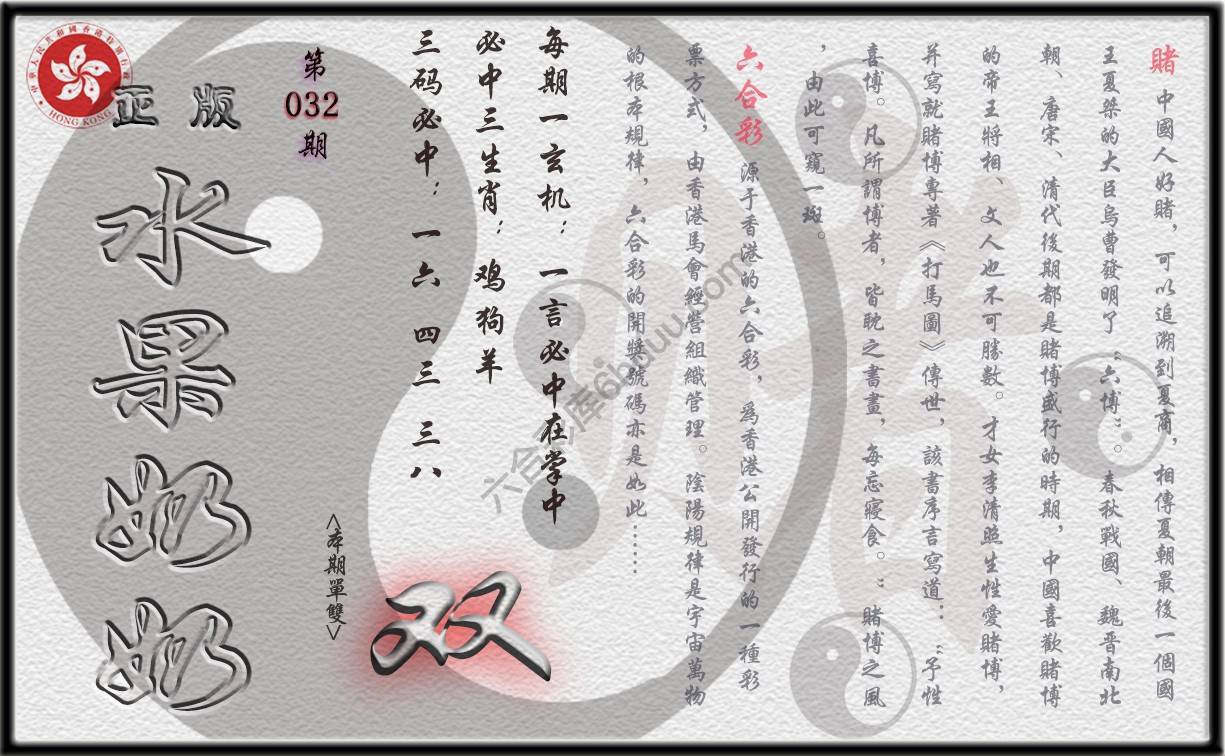 賭 中國人好賭，可以追溯到夏商，相傳夏朝最後一個國
王夏桀的大臣烏曹發明了“六博”。春秋戰國、魏晋南北
朝、唐宋、清代後期都是賭博盛行的時期，中國喜歡賭博
的帝王將相、文人也不可勝數。才女李清照生性愛賭博，
并寫就賭博專著《打馬圖》傳世，該書序言寫道：“予性
喜博。凡所謂博者，皆耽之書畫，每忘寢食。”賭博之風
，由此可窺一斑。
六合彩 源于香港的六合彩，爲香港公開發行的一種彩
票方式，由香港馬會經營組織管理。陰陽規律是宇宙萬物
的根本規律，六合彩的開獎號碼亦是如此……
每期一玄机：一言必中在掌中
必中三生肖：鸡狗羊
三码必中：一六 四三 三八
第
032
期
<本期單雙>
双
正版
水果奶奶
HONG KONG
六合彩库6hduu.com